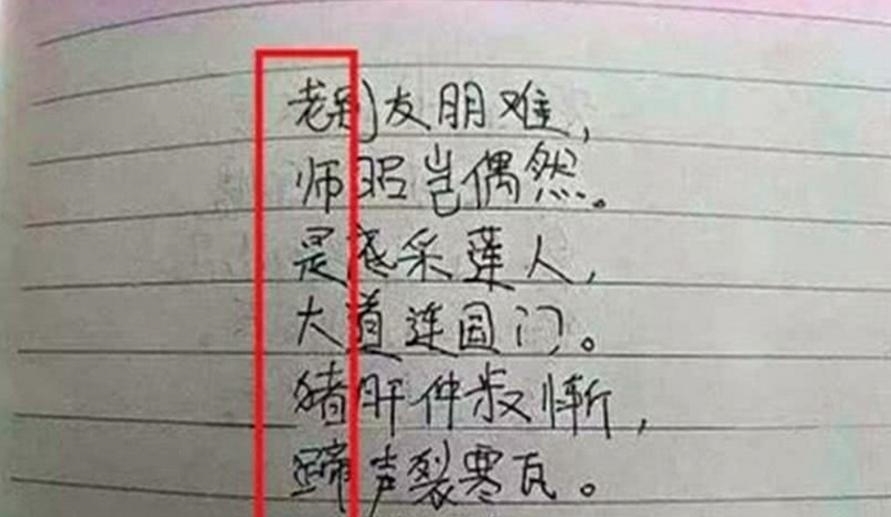 老别友朋难,
师昭岂偶然。
是底采莲人,
大道连国门。
猪肝仲叔惭,
蹄声裂寒瓦。